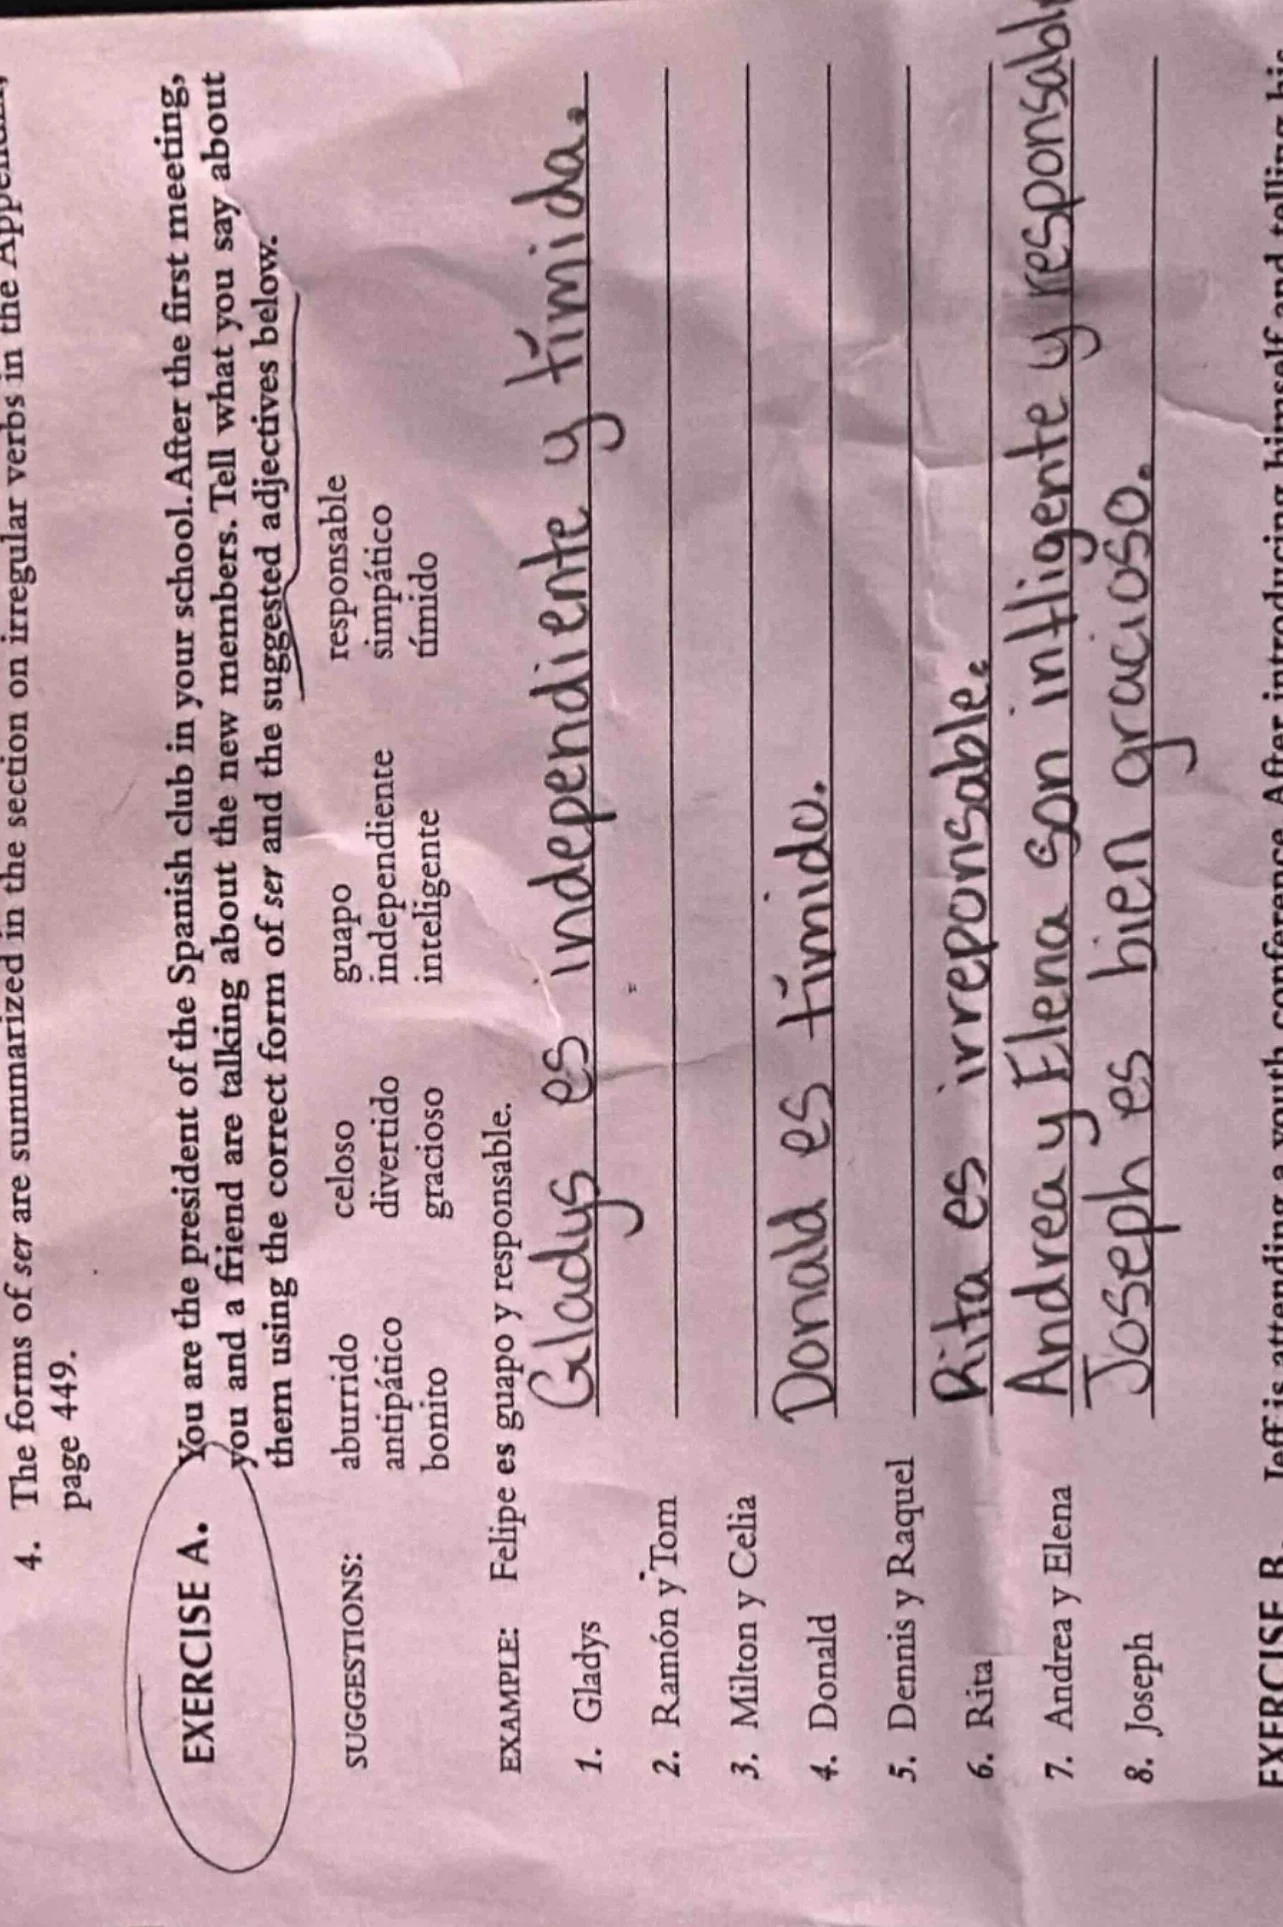 4. The forms of ser are summarized in the section on irregular verbs in the
page 449.
EXERCISE A. You are the president of the Spanish club in your school. After the first meeting,
you and a friend are talking about the new members. Tell what you say about
them using the correct form of ser and the suggested adjectives below.
SUGGESTIONS: aburrido celoso guapo responsable
antipático divertido independiente simpático
bonito gracioso inteligente tímido
EXAMPLE: Felipe es guapo y responsable.
1. Gladys Gladys es independiente y tímida.
2. Ramón y Tom
3. Milton y Celia
4. Donald Donald es tímido.
5. Dennis y Raquel
6. Rita Rita es irreponsable.
7. Andrea y Elena Andrea y Elena son intligente y responsable
8. Joseph Joseph es bien gracioso.
EXERCISE B. Jeff is attending a youth conference. After introducing himself and telling his